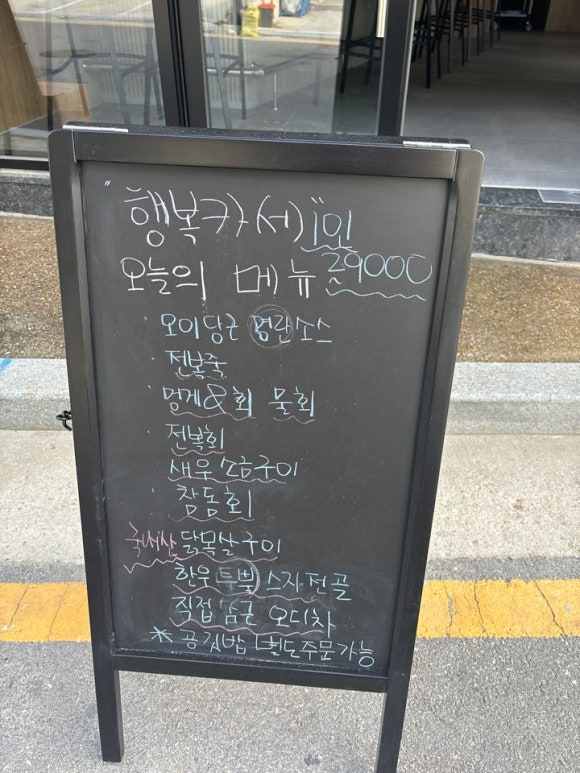 "행복카(세)" 1인
오늘의 메뉴 29000
· 오이당근 명란소스
· 전복죽
· 멍게&회 물회
· 전복회
· 새우 소금구이
· 참돔회
국내산 닭목살구이
한우 투뿔 스지전골
직접 담근 오디차
* 공깃밥 별도주문가능